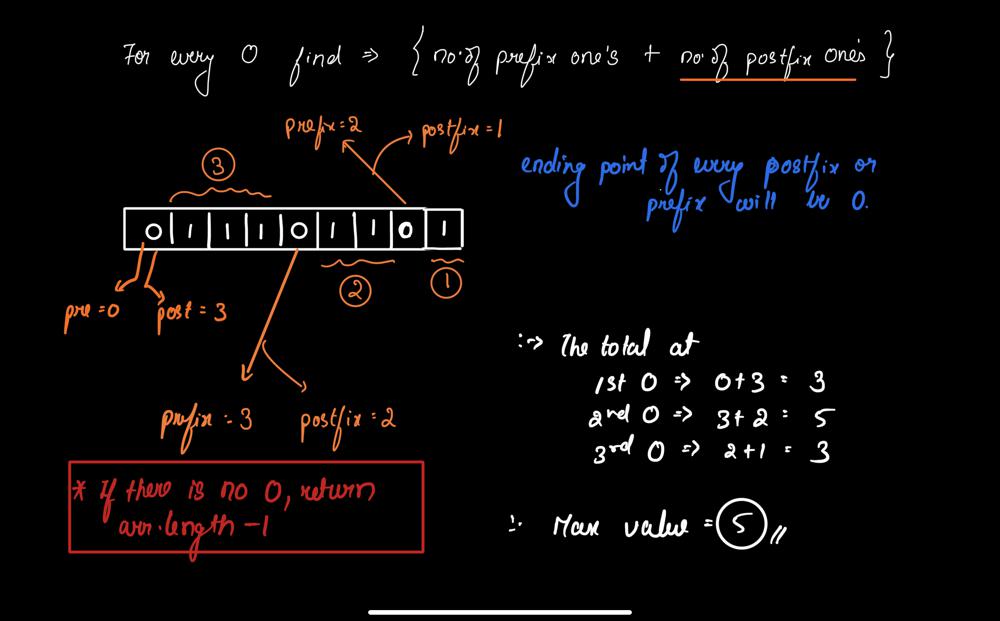 For every 0 find ⇒ { no. of prefix one's + no. of postfix one's }
prefix = 2
postfix = 1
3
ending point of every postfix or
prefix will be 0.
0 1 1 1 0 1 1 0 1
2
1
pre = 0
post = 3
∴ The total at
1st 0 ⇒ 0+3 = 3
2nd 0 ⇒ 3+2 = 5
3rd 0 ⇒ 2+1 = 3
prefix = 3
postfix = 2
* If there is no 0, return
arr.length -1
∴ Max value = 5 //